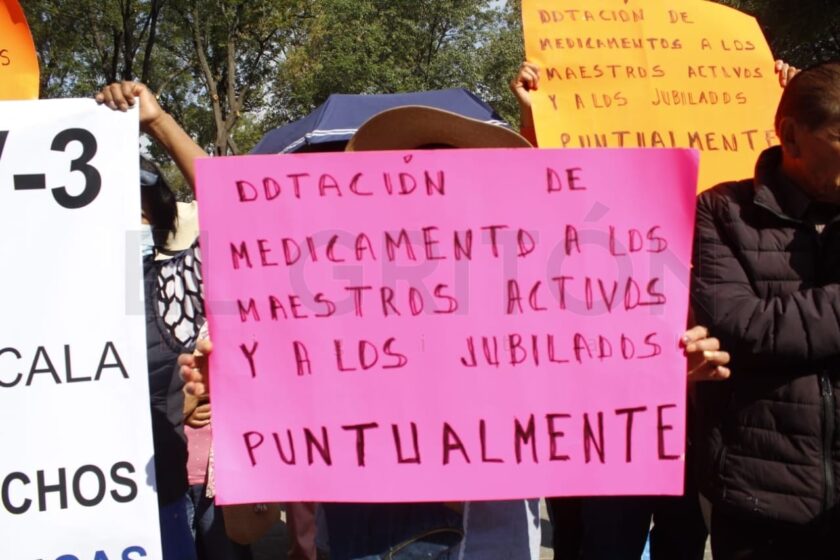 V-3
CALA
CHOS
DOTACIÓN DE
MEDICAMENTOS A LOS
MAESTROS ACTIVOS
Y A LOS JUBILADOS
PUNTUALMENTE
DOTACIÓN DE
MEDICAMENTO A LOS
MAESTROS ACTIVOS
Y A LOS JUBILADOS
PUNTUALMENTE
EL GRITÓN